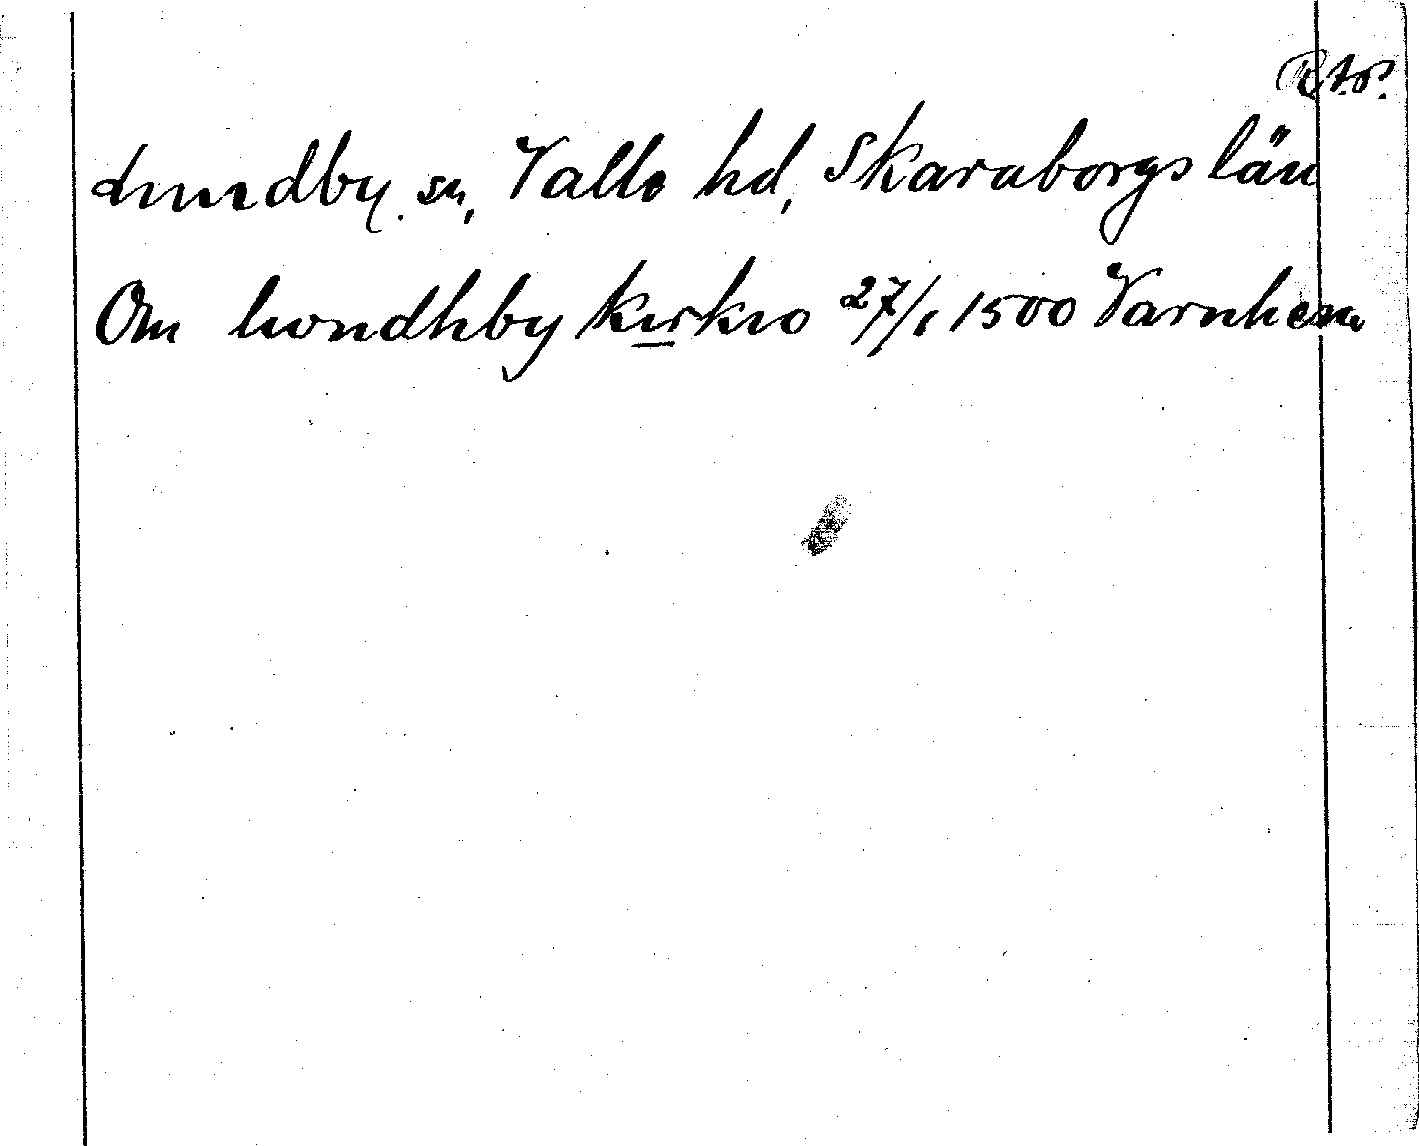 Lundby sn, Valle hd, Skaraborgs län
Om lwondhby kirkio 27/1 1500 Varnhem